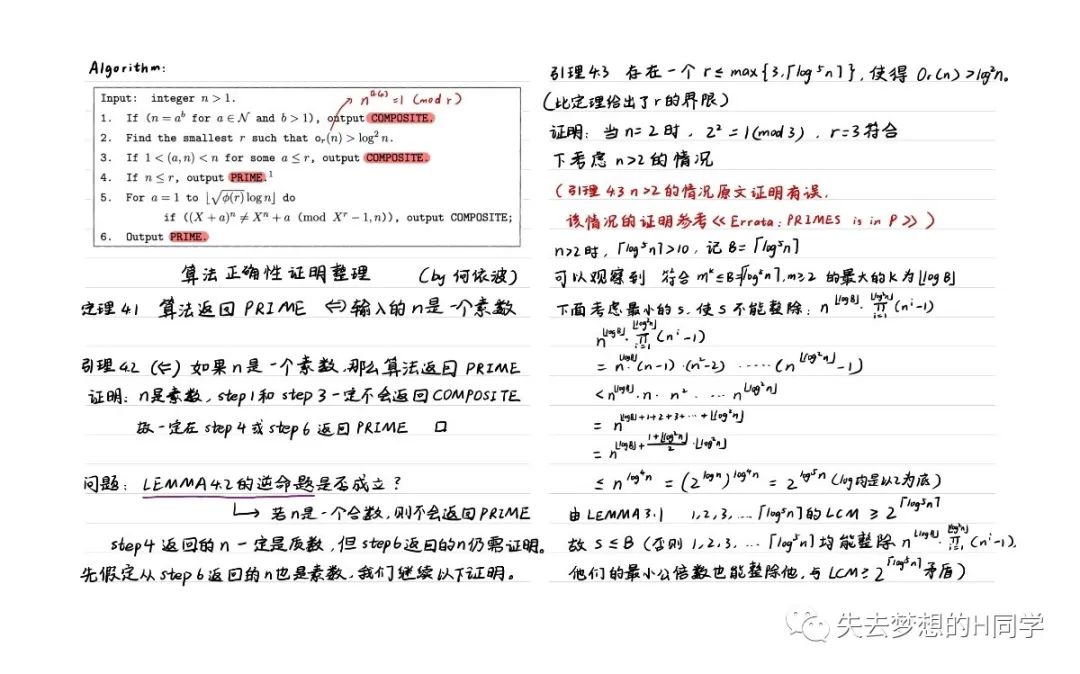 Algorithm:
Input: integer n > 1.
n^{o_r(n)} = 1 (mod r)
1. If (n = a^b for a ∈ N and b > 1), output COMPOSITE.
2. Find the smallest r such that o_r(n) > log² n.
3. If 1 < (a, n) < n for some a ≤ r, output COMPOSITE.
4. If n ≤ r, output PRIME.¹
5. For a = 1 to ⌊√φ(r) log n⌋ do
if ((X + a)^n ≠ X^n + a (mod X^r − 1, n)), output COMPOSITE;
6. Output PRIME.
算法正确性证明整理 (by 何依波)
定理4.1 算法返回PRIME ⇔ 输入的n是一个素数
引理4.2 (⇐) 如果n是一个素数,那么算法返回PRIME
证明: n是素数, step1和step 3一定不会返回COMPOSITE
故一定在step 4或step6返回PRIME □
问题: LEMMA4.2的逆命题是否成立?
↳ 若n是一个合数,则不会返回PRIME
step4返回的n一定是质数,但step6返回的n仍需证明。
先假定从step6返回的n也是素数,我们继续以下证明。
引理4.3 存在一个 r ≤ max{3,⌈log⁵n⌉}, 使得 Or(n) > log²n。
(此定理给出了r的界限)
证明: 当n=2时, 2² = 1(mod 3), r=3符合
下考虑n>2的情况
(引理4.3 n>2的情况原文证明有误,
该情况的证明参考《Errata: PRIMES is in P》)
n>2时, ⌈log⁵n⌉>10, 记B=⌈log⁵n⌉
可以观察到 符合 m^k ≤ B=⌈log⁵n⌉, m≥2 的最大的k为⌊log B⌋
下面考虑最小的s, 使s不能整除: n^{⌊log B⌋} · ∏_{i=1}^{⌊log²n⌋} (n^i−1)
n^{⌊log B⌋} · ∏_{i=1}^{⌊log²n⌋} (n^i−1)
= n^{⌊log B⌋} · (n−1) · (n²−2) ····· (n^{⌊log²n⌋} −1)
< n^{⌊log B⌋} · n · n² ··· n^{⌊log²n⌋}
= n^{⌊log B⌋+1+2+3+···+⌊log²n⌋}
= n^{⌊log B⌋ + \frac{1+⌊log²n⌋}{2} · ⌊log²n⌋}
≤ n^{log⁴n} = (2^{log n})^{log⁴n} = 2^{log⁵n} (log均是以2为底)
由LEMMA3.1 1,2,3,...⌈log⁵n⌉的LCM ≥ 2^{⌈log⁵n⌉}
故 s ≤ B (否则 1,2,3,...⌈log⁵n⌉均能整除 n^{⌊log B⌋} · ∏_{i=1}^{⌊log²n⌋} (n^i−1),
他们的最小公倍数也能整除他,与LCM ≥ 2^{⌈log⁵n⌉}矛盾)
失去梦想的H同学